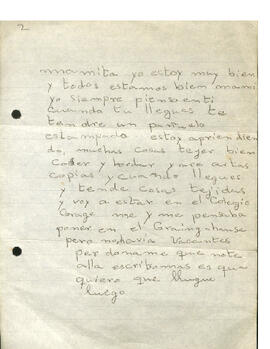 2
mamita yo estoy muy bien
y todos estamos bien mami
yo siempre pienso enti
cuando tu llegues te
tendre un pañuelo
estampado. estoy aprendien
do, muchas cosas tejer bien
Coser y bordar y
copias y cuando llegues
y tende cosas tejidas
y voy a estar en el Colegio
me y me pensaba
poner en el
pero nohavia Vacantes
perdoname que note
alla escrito mas es que
quiero que llugue
luego